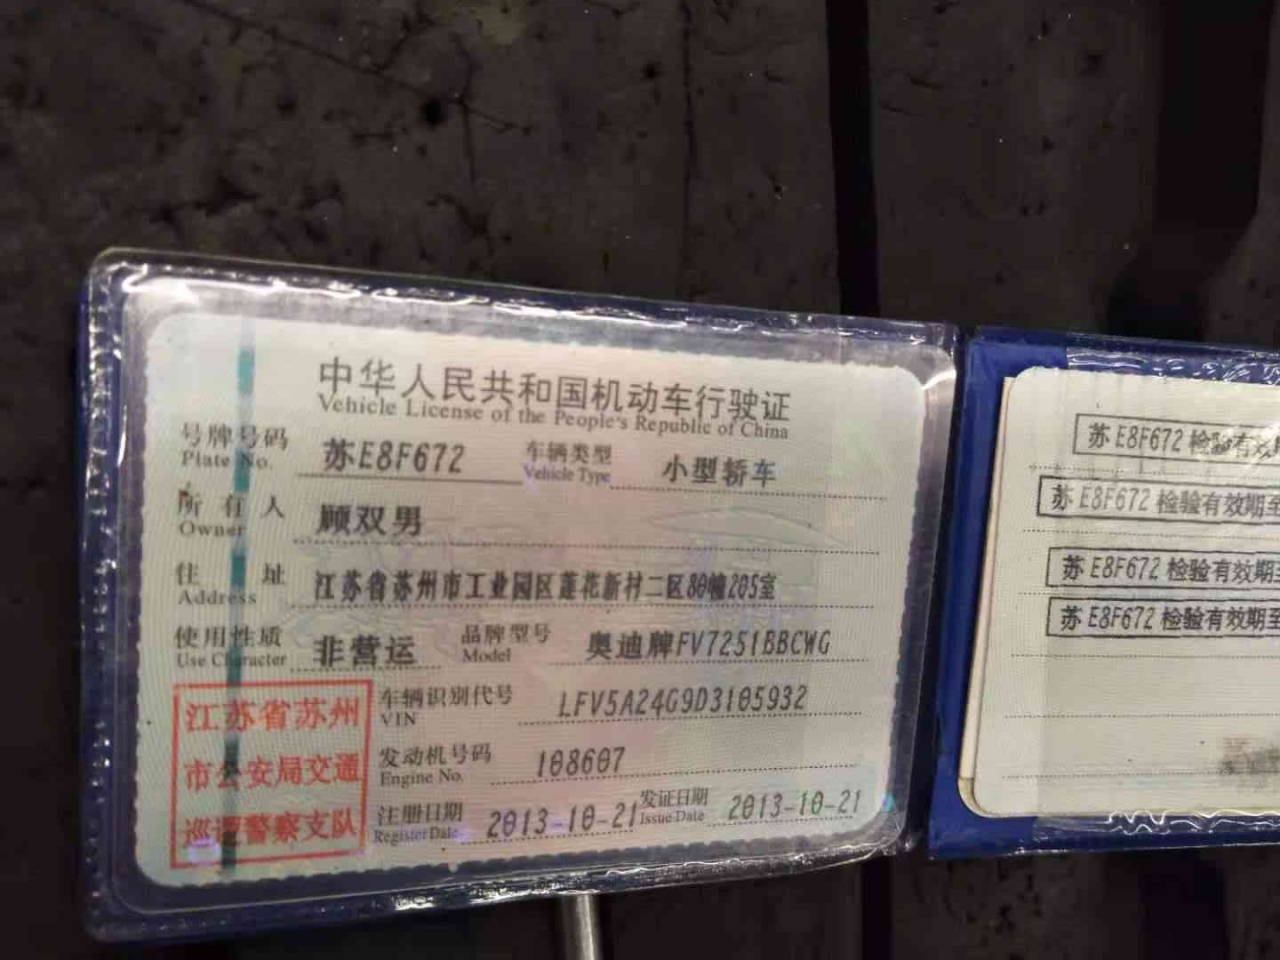 中华人民共和国机动车行驶证
Vehicle License of the People's Republic of China
号牌号码 苏E8F672 车辆类型 小型轿车
Plate No. Vehicle Type
所有人 顾双男
Owner
住址 江苏省苏州市工业园区莲花新村二区80幢205室
Address
使用性质 非营运 品牌型号 奥迪牌FV7251BBCWG
Use Character Model
车辆识别代号 LFV5A24G9D3105932
VIN
发动机号码 108607
Engine No.
注册日期 2013-10-21 发证日期 2013-10-21
Register Date Issue Date
江苏省苏州
市公安局交通
巡逻警察支队
苏E8F672 检验有效
苏E8F672 检验有效期至
苏E8F672 检验有效期至
苏E8F672 检验有效期至